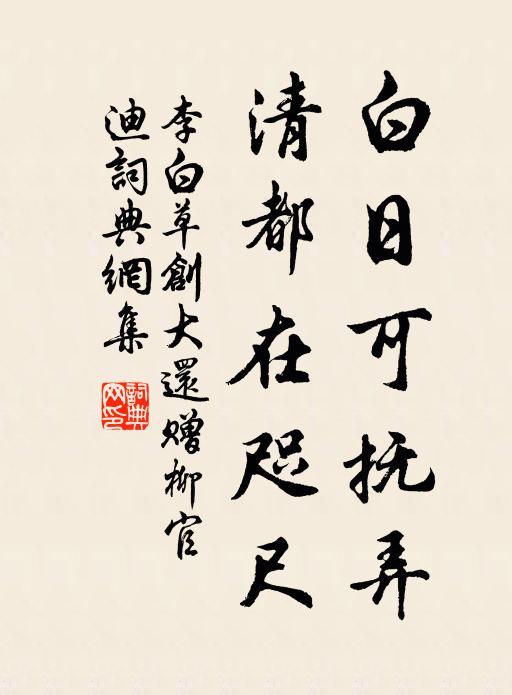 白日可抚弄
清都在咫尺
李白草創大還贈柳官
迪詞典網集
詞典网印